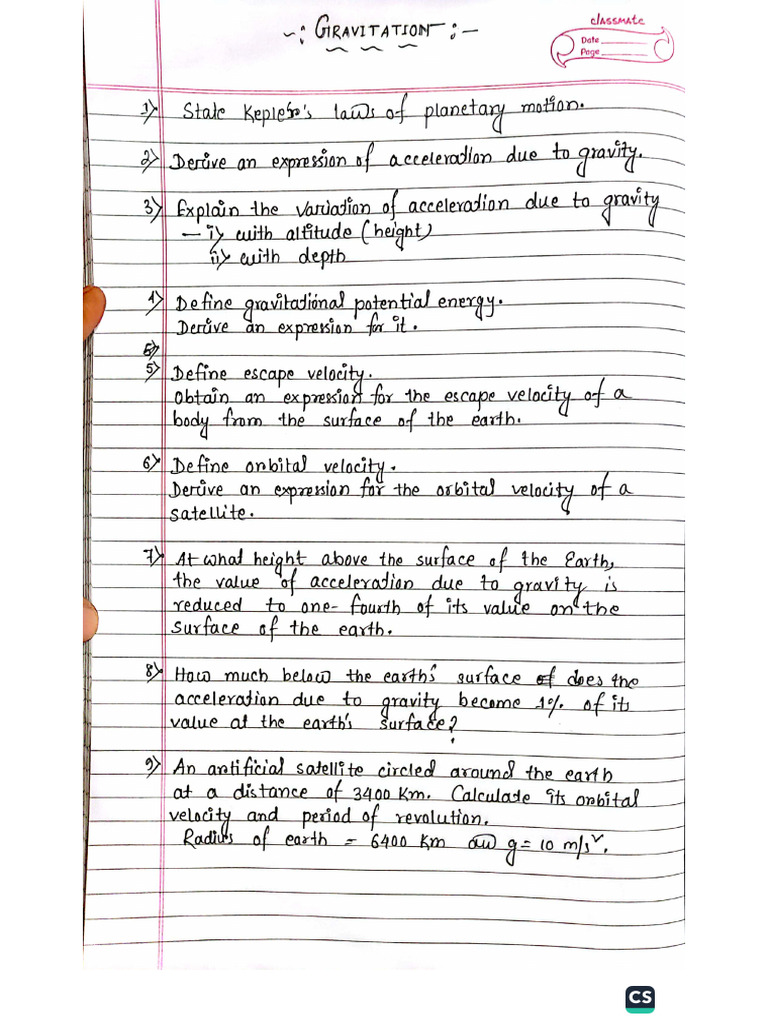 -: GRAVITATION :-
classmate
Date
Page
1) State Kepler's laws of planetary motion.
2) Derive an expression of acceleration due to gravity.
3) Explain the variation of acceleration due to gravity
- i) with altitude (height)
ii) with depth
4) Define gravitational potential energy.
Derive an expression for it.
5)
5) Define escape velocity.
Obtain an expression for the escape velocity of a
body from the surface of the earth.
6) Define orbital velocity.
Derive an expression for the orbital velocity of a
satellite.
7) At what height above the surface of the Earth,
the value of acceleration due to gravity is
reduced to one-fourth of its value on the
surface of the earth.
8) How much below the earth's surface of does the
acceleration due to gravity become 1% of its
value at the earth's surface?
9) An artificial satellite circled around the earth
at a distance of 3400 Km. Calculate its orbital
velocity and period of revolution.
Radius of earth = 6400 Km g = 10 m/s².
CS